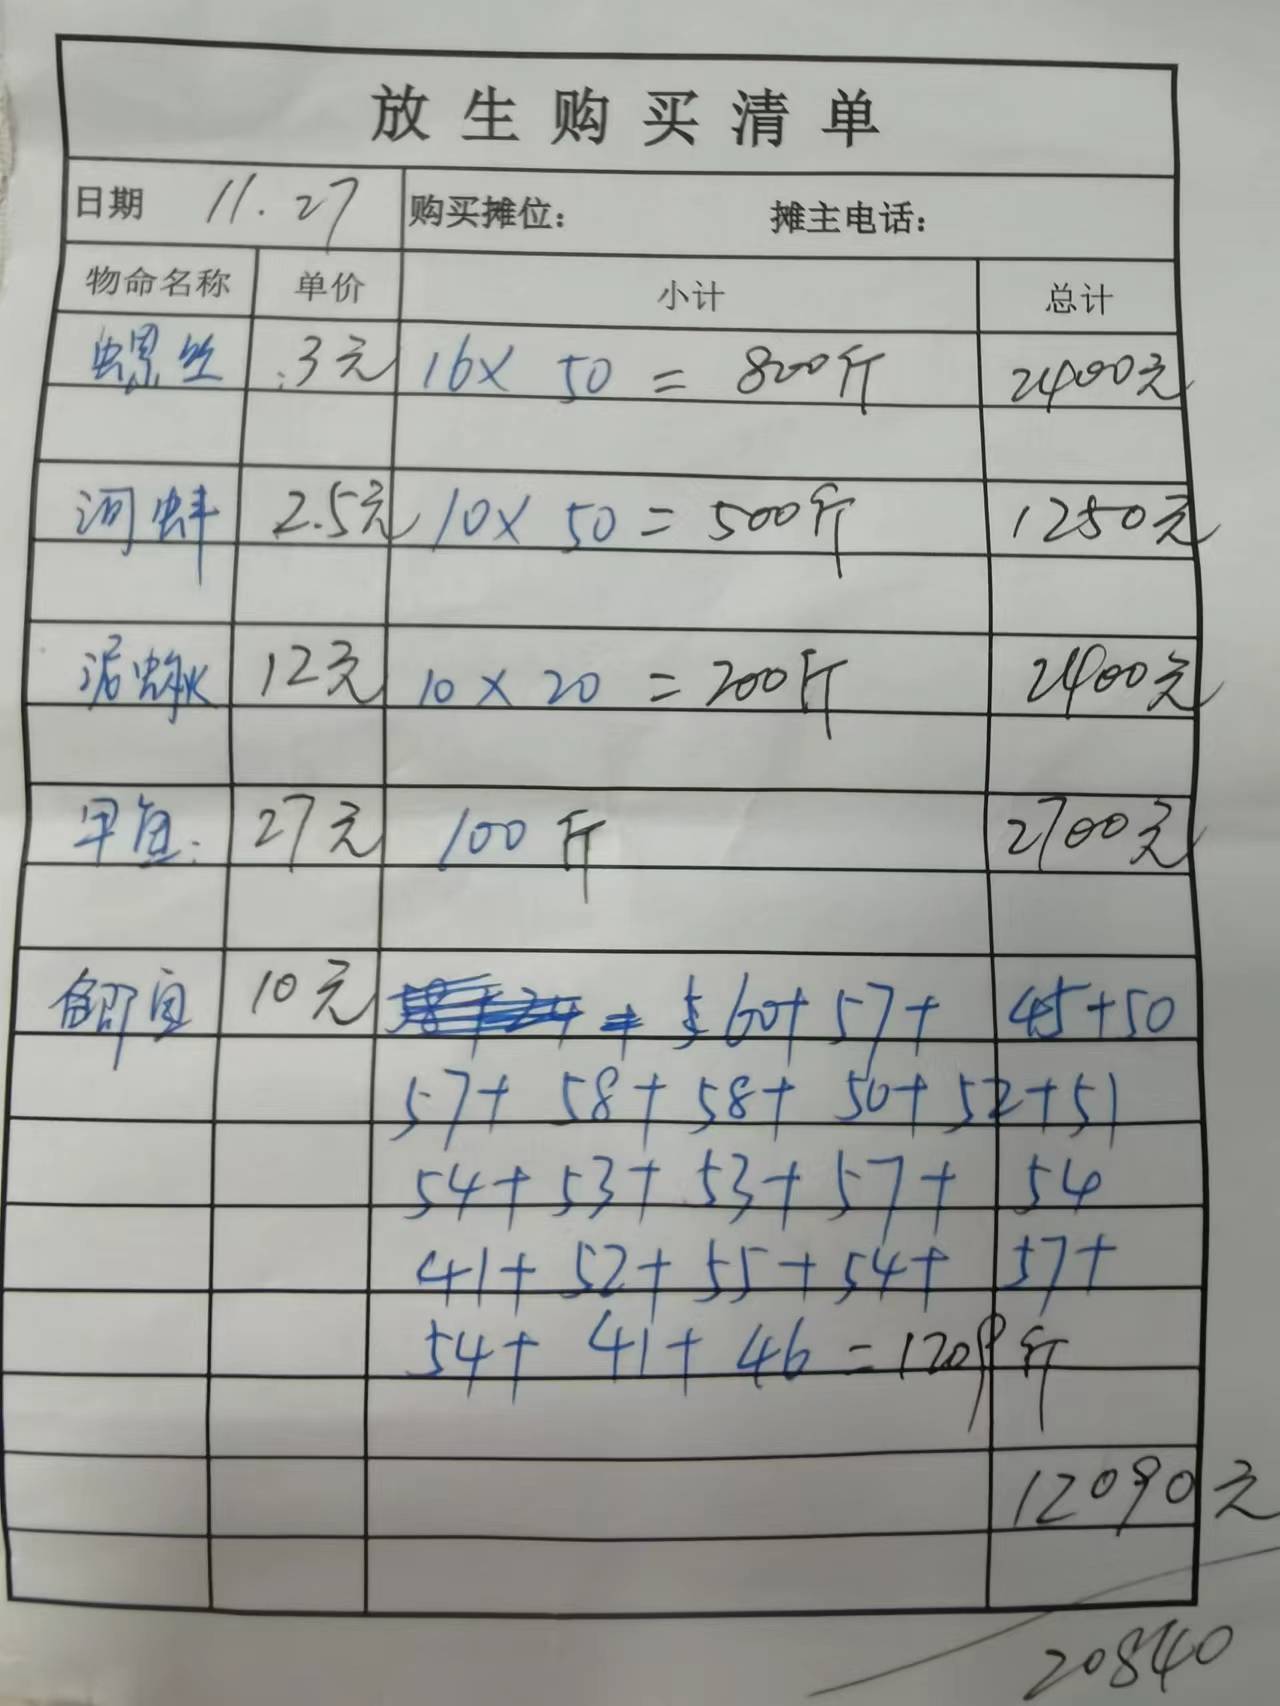 放生购买清单
日期 11.27 购买摊位： 摊主电话：
物命名称 单价 小计 总计
螺丝 3元 16× 50 = 800斤 2400元
河蚌 2.5元 10× 50 = 500斤 1250元
泥鳅 12元 10 × 20 = 200斤 2400元
甲鱼 27元 100斤 2700元
鲫鱼 10元 60+ 57+ 45+50
57+ 58+ 58+ 50+ 52+51
54+ 53+ 53+ 57+ 54
41+ 52+ 55+ 54+ 57+
54+ 41+ 46 = 1209斤
12090元
20840